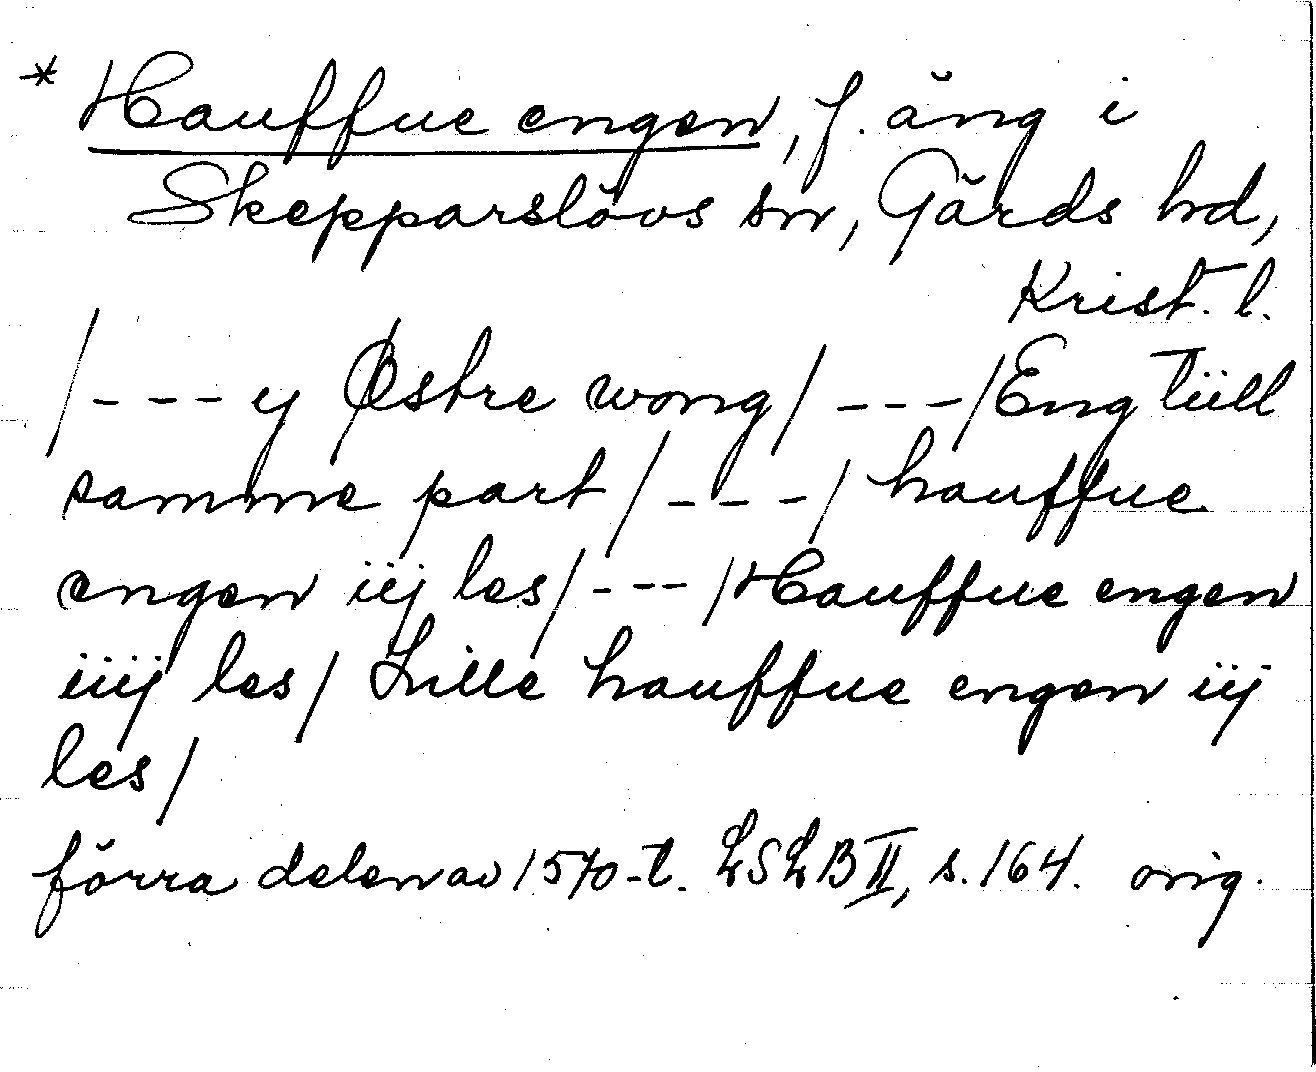 * Hauffue engen, f. äng i
Skepparslövs sn, Gärds hd,
Krist. l.
/--- y Østre wong/ ---/Eng tiill
samme part/---/ hauffue
engen iij les/---/Hauffue engen
iiij les/ Lille hauffue engen iij
les/
förra delen av 1570-t. LSLB II, s. 164. orig.